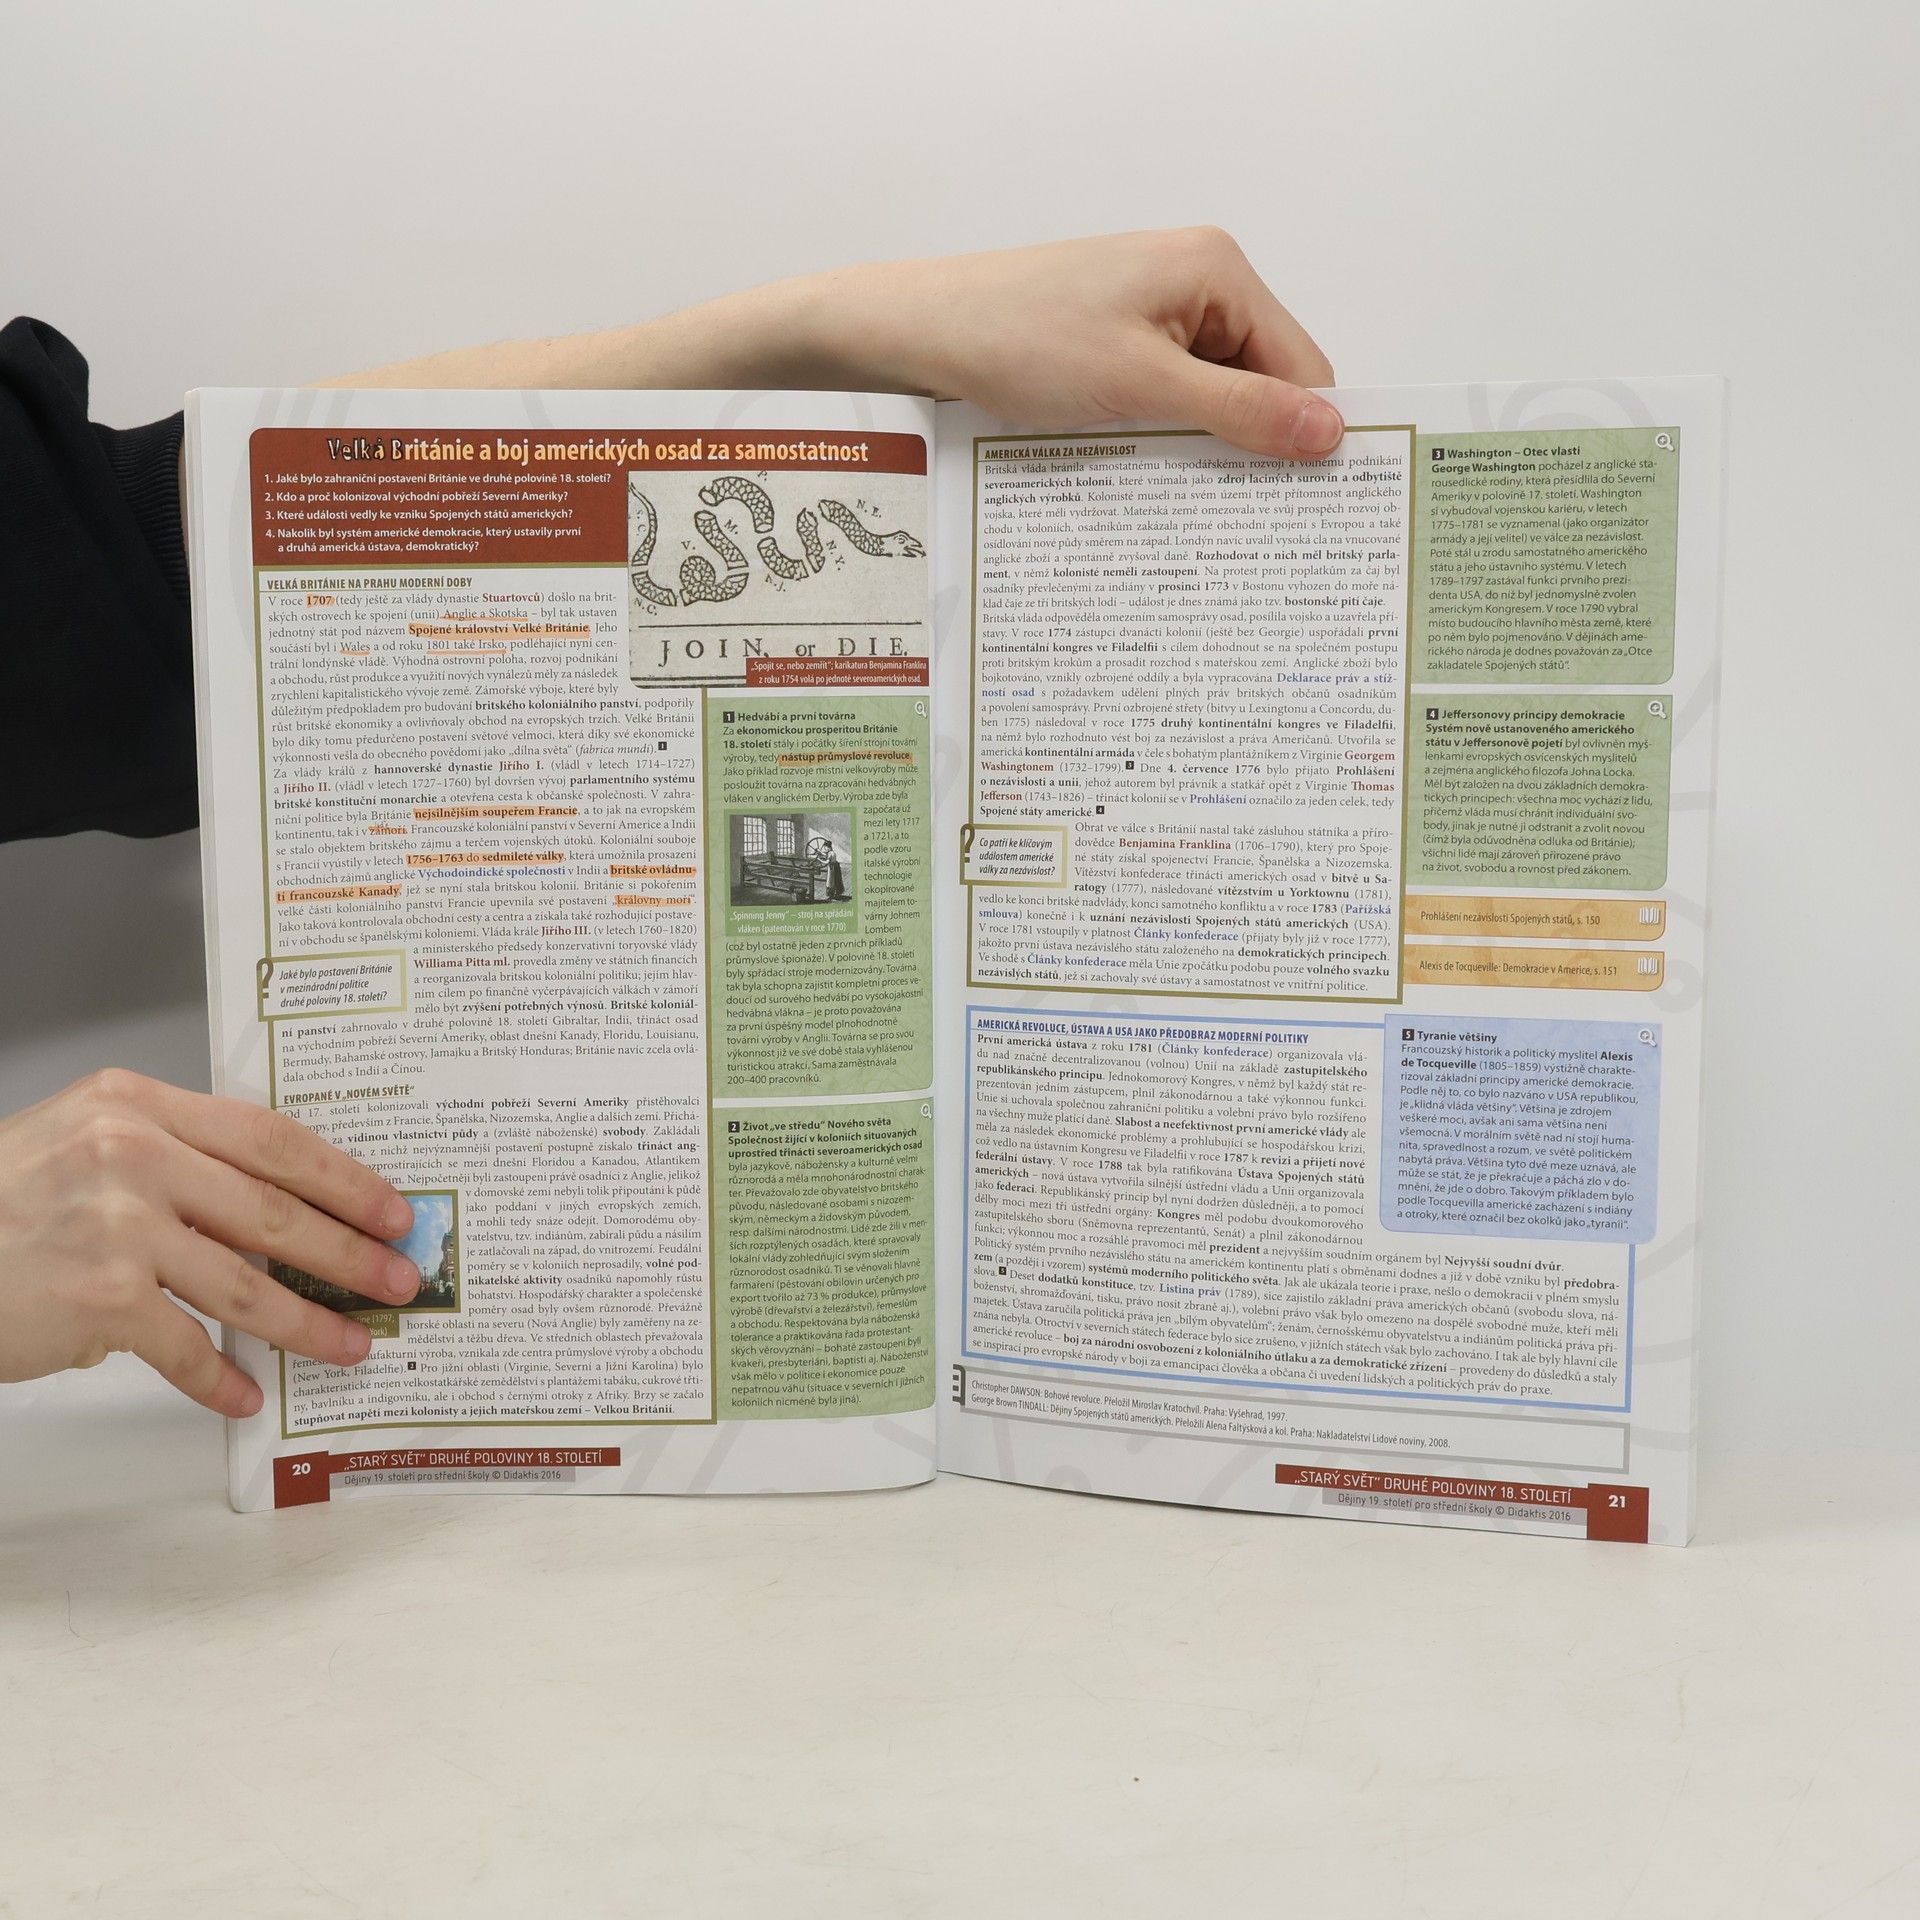 Velká Británie a boj amerických osad za samostatnost
1. Jaké bylo zahraniční postavení Británie ve druhé polovině 18. století?
2. Kdo a proč kolonizoval východní pobřeží Severní Ameriky?
3. Které události vedly ke vzniku Spojených států amerických?
4. Nakolik byl systém americké demokracie, který ustavily první
a druhá americká ústava, demokratický?
S.C.
N.C.
V.
M.
P.
N.J.
N.Y.
N.E.
JOIN, or DIE.
„Spojit se, nebo zemřít“; karikatura Benjamina Franklina
z roku 1754 volá po jednotě severoamerických osad.
VELKÁ BRITÁNIE NA PRAHU MODERNÍ DOBY
V roce 1707 (tedy ještě za vlády dynastie Stuartovců) došlo na brit-
ských ostrovech ke spojení (unii) Anglie a Skotska – byl tak ustaven
jednotný stát pod názvem Spojené království Velké Británie. Jeho
součástí byl i Wales a od roku 1801 také Irsko, podléhající nyní cen-
trální londýnské vládě. Výhodná ostrovní poloha, rozvoj podnikání
a obchodu, růst produkce a využití nových vynálezů měly za následek
zrychlení kapitalistického vývoje země. Zámořské výboje, které byly
důležitým předpokladem pro budování britského koloniálního panství, podpořily
růst britské ekonomiky a ovlivňovaly obchod na evropských trzích. Velké Británii
bylo díky tomu předurčeno postavení světové velmoci, která díky své ekonomické
výkonnosti vešla do obecného povědomí jako „dílna světa“ (fabrica mundi). 1
Za vlády králů z hannoverské dynastie Jiřího I. (vládl v letech 1714–1727)
a Jiřího II. (vládl v letech 1727–1760) byl dovršen vývoj parlamentního systému
britské konstituční monarchie a otevřena cesta k občanské společnosti. V zahra-
niční politice byla Británie nejsilnějším soupeřem Francie, a to jak na evropském
kontinentu, tak i v zámoří. Francouzské koloniální panství v Severní Americe a Indii
se stalo objektem britského zájmu a terčem vojenských útoků. Koloniální souboje
s Francií vyústily v letech 1756–1763 do sedmileté války, která umožnila prosazení
obchodních zájmů anglické Východoindické společnosti v Indii a britské ovládnu-
tí francouzské Kanady, jež se nyní stala britskou kolonií. Británie si pokořením
velké části koloniálního panství Francie upevnila své postavení „královny moří“.
Jako taková kontrolovala obchodní cesty a centra a získala také rozhodující postave-
ní v obchodu se španělskými koloniemi. Vláda krále Jiřího III. (v letech 1760–1820)
a ministerského předsedy konzervativní toryovské vlády
Williama Pitta ml. provedla změny ve státních financích
a reorganizovala britskou koloniální politiku; jejím hlav-
ním cílem po finančně vyčerpávajících válkách v zámoří
mělo být zvýšení potřebných výnosů. Britské koloniál-
ní panství zahrnovalo v druhé polovině 18. století Gibraltar, Indii, třináct osad
na východním pobřeží Severní Ameriky, oblast dnešní Kanady, Floridu, Louisianu,
Bermudy, Bahamské ostrovy, Jamajku a Britský Honduras; Británie navíc zcela ovlá-
dala obchod s Indií a Čínou.
?
Jaké bylo postavení Británie
v mezinárodní politice
druhé poloviny 18. století?
EVROPANÉ V „NOVÉM SVĚTĚ“
Od 17. století kolonizovali východní pobřeží Severní Ameriky přistěhovalci
ropy, především z Francie, Španělska, Nizozemska, Anglie a dalších zemí. Přichá-
za vidinou vlastnictví půdy a (zvláště náboženské) svobody. Zakládali
dla, z nichž nejvýznamnější postavení postupně získalo třináct ang-
ozprostírajících se mezi dnešní Floridou a Kanadou, Atlantikem
ím. Nejpočetněji byli zastoupeni právě osadníci z Anglie, jelikož
v domovské zemi nebyli tolik připoutáni k půdě
jako poddaní v jiných evropských zemích,
a mohli tedy snáze odejít. Domorodému oby-
vatelstvu, tzv. indiánům, zabírali půdu a násilím
je zatlačovali na západ, do vnitrozemí. Feudální
poměry se v koloniích neprosadily, volné pod-
nikatelské aktivity osadníků napomohly růstu
bohatství. Hospodářský charakter a společenské
poměry osad byly ovšem různorodé. Převážně
horské oblasti na severu (Nová Anglie) byly zaměřeny na ze-
mědělství a těžbu dřeva. Ve středních oblastech převažovala
ufakturní výroba, vznikala zde centra průmyslové výroby a obchodu
(New York, Filadelfie). 2 Pro jižní oblasti (Virginie, Severní a Jižní Karolína) bylo
charakteristické nejen velkostatkářské zemědělství s plantážemi tabáku, cukrové třti-
ny, bavlníku a indigovníku, ale i obchod s černými otroky z Afriky. Brzy se začalo
stupňovat napětí mezi kolonisty a jejich mateřskou zemí – Velkou Británií.
tine (1797;
York)
1 Hedvábí a první továrna
Za ekonomickou prosperitou Británie
18. století stály i počátky šíření strojní tovární
výroby, tedy nástup průmyslové revoluce.
Jako příklad rozvoje místní velkovýroby může
posloužit továrna na zpracování hedvábných
vláken v anglickém Derby. Výroba zde byla
započata už
mezi lety 1717
a 1721, a to
podle vzoru
italské výrobní
technologie
okopírované
majitelem to-
várny Johnem
Lombem
(což byl ostatně jeden z prvních příkladů
průmyslové špionáže). V polovině 18. století
byly spřádací stroje modernizovány. Továrna
tak byla schopna zajistit kompletní proces ve-
doucí od surového hedvábí po vysokojakostní
hedvábná vlákna – je proto považována
za první úspěšný model plnohodnotné
tovární výroby v Anglii. Továrna se pro svou
výkonnost již ve své době stala vyhlášenou
turistickou atrakcí. Sama zaměstnávala
200–400 pracovníků.
„Spinning Jenny“ – stroj na spřádání
vláken (patentován v roce 1770)
2 Život „ve středu“ Nového světa
Společnost žijící v koloniích situovaných
uprostřed třinácti severoamerických osad
byla jazykově, nábožensky a kulturně velmi
různorodá a měla mnohonárodnostní charak-
ter. Převažovalo zde obyvatelstvo britského
původu, následované osobami s nizozem-
ským, německým a židovským původem.
resp. dalšími národnostmi. Lidé zde žili v men-
ších rozptýlených osadách, které spravovaly
lokální vlády zohledňující svým složením
různorodost osadníků. Ti se věnovali hlavně
farmaření (pěstování obilovin určených pro
export tvořilo až 73 % produkce), průmyslové
výrobě (dřevařství a železářství), řemeslům
a obchodu. Respektována byla náboženská
tolerance a praktikována řada protestant-
ských věrovyznání – bohatě zastoupeni byli
kvakeři, presbyteriáni, baptisti aj. Náboženství
však mělo v politice i ekonomice pouze
nepatrnou váhu (situace v severních i jižních
koloniích nicméně byla jiná).
20
„STARÝ SVĚT“ DRUHÉ POLOVINY 18. STOLETÍ
Dějiny 19. století pro střední školy © Didaktis 2016
AMERICKÁ VÁLKA ZA NEZÁVISLOST
Britská vláda bránila samostatnému hospodářskému rozvoji a volnému podnikání
severoamerických kolonií, které vnímala jako zdroj laciných surovin a odbytiště
anglických výrobků. Kolonisté museli na svém území trpět přítomnost anglického
vojska, které měli vydržovat. Mateřská země omezovala ve svůj prospěch rozvoj ob-
chodu v koloniích, osadníkům zakázala přímé obchodní spojení s Evropou a také
osídlování nové půdy směrem na západ. Londýn navíc uvalil vysoká cla na vnucované
anglické zboží a spontánně zvyšoval daně. Rozhodovat o nich měl britský parla-
ment, v němž kolonisté neměli zastoupení. Na protest proti poplatkům za čaj byl
osadníky převlečenými za indiány v prosinci 1773 v Bostonu vyhozen do moře ná-
klad čaje ze tří britských lodí – událost je dnes známá jako tzv. bostonské pití čaje.
Britská vláda odpověděla omezením samosprávy osad, posílila vojsko a uzavřela pří-
stavy. V roce 1774 zástupci dvanácti kolonií (ještě bez Georgie) uspořádali první
kontinentální kongres ve Filadelfii s cílem dohodnout se na společném postupu
proti britským krokům a prosadit rozchod s mateřskou zemí. Anglické zboží bylo
bojkotováno, vznikly ozbrojené oddíly a byla vypracována Deklarace práv a stíž-
ností osad s požadavkem udělení plných práv britských občanů osadníkům
a povolení samosprávy. První ozbrojené střety (bitvy u Lexingtonu a Concordu, du-
ben 1775) následoval v roce 1775 druhý kontinentální kongres ve Filadelfii,
na němž bylo rozhodnuto vést boj za nezávislost a práva Američanů. Utvořila se
americká kontinentální armáda v čele s bohatým plantážníkem z Virginie Georgem
Washingtonem (1732–1799). 3 Dne 4. července 1776 bylo přijato Prohlášení
o nezávislosti a unii, jehož autorem byl právník a statkář opět z Virginie Thomas
Jefferson (1743–1826) – třináct kolonií se v Prohlášení označilo za jeden celek, tedy
Spojené státy americké. 4
Obrat ve válce s Británií nastal také zásluhou státníka a příro-
dovědce Benjamina Franklina (1706–1790), který pro Spoje-
né státy získal spojenectví Francie, Španělska a Nizozemska.
Vítězství konfederace třinácti amerických osad v bitvě u Sa-
ratogy (1777), následované vítězstvím u Yorktownu (1781),
vedlo ke konci britské nadvlády, konci samotného konfliktu a v roce 1783 (Pařížská
smlouva) konečně i k uznání nezávislosti Spojených států amerických (USA).
V roce 1781 vstoupily v platnost Články konfederace (přijaty byly již v roce 1777),
jakožto první ústava nezávislého státu založeného na demokratických principech.
Ve shodě s Články konfederace měla Unie zpočátku podobu pouze volného svazku
nezávislých států, jež si zachovaly své ústavy a samostatnost ve vnitřní politice.
?
Co patří ke klíčovým
událostem americké
války za nezávislost?
3 Washington – Otec vlasti
George Washington pocházel z anglické sta-
rousedlické rodiny, která přesídlila do Severní
Ameriky v polovině 17. století. Washington
si vybudoval vojenskou kariéru, v letech
1775–1781 se vyznamenal (jako organizátor
armády a její velitel) ve válce za nezávislost.
Poté stál u zrodu samostatného amerického
státu a jeho ústavního systému. V letech
1789–1797 zastával funkci prvního prezi-
denta USA, do níž byl jednomyslně zvolen
americkým Kongresem. V roce 1790 vybral
místo budoucího hlavního města země, které
po něm bylo pojmenováno. V dějinách ame-
rického národa je dodnes považován za „Otce
zakladatele Spojených států“.
4 Jeffersonovy principy demokracie
Systém nově ustanoveného amerického
státu v Jeffersonově pojetí byl ovlivněn myš-
lenkami evropských osvícenských myslitelů
a zejména anglického filozofa Johna Locka.
Měl být založen na dvou základních demokra-
tických principech: všechna moc vychází z lidu,
přičemž vláda musí chránit individuální svo-
body, jinak je nutné ji odstranit a zvolit novou
(čímž byla odůvodněna odluka od Británie);
všichni lidé mají zároveň přirozené právo
na život, svobodu a rovnost před zákonem.
Prohlášení nezávislosti Spojených států, s. 150
Alexis de Tocqueville: Demokracie v Americe, s. 151
AMERICKÁ REVOLUCE, ÚSTAVA A USA JAKO PŘEDOBRAZ MODERNÍ POLITIKY
První americká ústava z roku 1781 (Články konfederace) organizovala vlá-
du nad značně decentralizovanou (volnou) Unií na základě zastupitelského
republikánského principu. Jednokomorový Kongres, v němž byl každý stát re-
prezentován jedním zástupcem, plnil zákonodárnou a také výkonnou funkci.
Unie si uchovala společnou zahraniční politiku a volební právo bylo rozšířeno
na všechny muže platící daně. Slabost a neefektivnost první americké vlády ale
měla za následek ekonomické problémy a prohlubující se hospodářskou krizi,
což vedlo na ústavním Kongresu ve Filadelfii v roce 1787 k revizi a přijetí nové
federální ústavy. V roce 1788 tak byla ratifikována Ústava Spojených států
amerických – nová ústava vytvořila silnější ústřední vládu a Unii organizovala
jako federaci. Republikánský princip byl nyní dodržen důsledněji, a to pomocí
dělby moci mezi tři ústřední orgány: Kongres měl podobu dvoukomorového
zastupitelského sboru (Sněmovna reprezentantů, Senát) a plnil zákonodárnou
funkci; výkonnou moc a rozsáhlé pravomoci měl prezident a nejvyšším soudním orgánem byl Nejvyšší soudní dvůr.
Politický systém prvního nezávislého státu na americkém kontinentu platí s obměnami dodnes a již v době vzniku byl předobra-
zem (a později i vzorem) systémů moderního politického světa. Jak ale ukázala teorie i praxe, nešlo o demokracii v plném smyslu
slova. 5 Deset dodatků konstituce, tzv. Listina práv (1789), sice zajistilo základní práva amerických občanů (svobodu slova, ná-
boženství, shromažďování, tisku, právo nosit zbraně aj.), volební právo však bylo omezeno na dospělé svobodné muže, kteří měli
majetek. Ústava zaručila politická práva jen „bílým obyvatelům“; ženám, černošskému obyvatelstvu a indiánům politická práva při-
znána nebyla. Otroctví v severních státech federace bylo sice zrušeno, v jižních státech však bylo zachováno. I tak ale byly hlavní cíle
americké revoluce – boj za národní osvobození z koloniálního útlaku a za demokratické zřízení – provedeny do důsledků a staly
se inspirací pro evropské národy v boji za emancipaci člověka a občana či uvedení lidských a politických práv do praxe.
5 Tyranie většiny
Francouzský historik a politický myslitel Alexis
de Tocqueville (1805–1859) výstižně charakte-
rizoval základní principy americké demokracie.
Podle něj to, co bylo nazváno v USA republikou,
je „klidná vláda většiny“. Většina je zdrojem
veškeré moci, avšak ani sama většina není
všemocná. V morálním světě nad ní stojí huma-
nita, spravedlnost a rozum, ve světě politickém
nabytá práva. Většina tyto dvě meze uznává, ale
může se stát, že je překračuje a páchá zlo v do-
mnění, že jde o dobro. Takovým příkladem bylo
podle Tocquevilla americké zacházení s indiány
a otroky, které označil bez okolků jako „tyranii“.
Christopher DAWSON: Bohové revoluce. Přeložil Miroslav Kratochvíl. Praha: Vyšehrad, 1997.
George Brown TINDALL: Dějiny Spojených států amerických. Přeložili Alena Faltýsková a kol. Praha: Nakladatelství Lidové noviny, 2008.
„STARÝ SVĚT“ DRUHÉ POLOVINY 18. STOLETÍ
Dějiny 19. století pro střední školy © Didaktis 2016
21